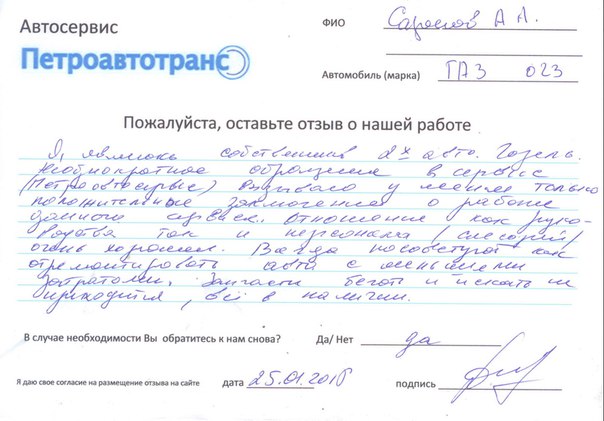 Автосервис
Петроавтотранс
ФИО А А.
Автомобиль (марка) ГАЗ 023
Пожалуйста, оставьте отзыв о нашей работе
Я, являюсь собственник 2х авто. Газель.
Неоднократное обращение в сервис
(Петроавтосервис) вызывало у меня только
положительные о работе
данного сервиса. Отношение как руко-
водства так и персонала (слесарей)
очень хорошее. Всегда посоветуют как
отремонтировать авто с меньшими
затратами. Запчасти бегать и искать не
приходится, всё в наличии.
В случае необходимости Вы обратитесь к нам снова? Да/ Нет да
Я даю свое согласие на размещение отзыва на сайте дата 25.01.201 подпись